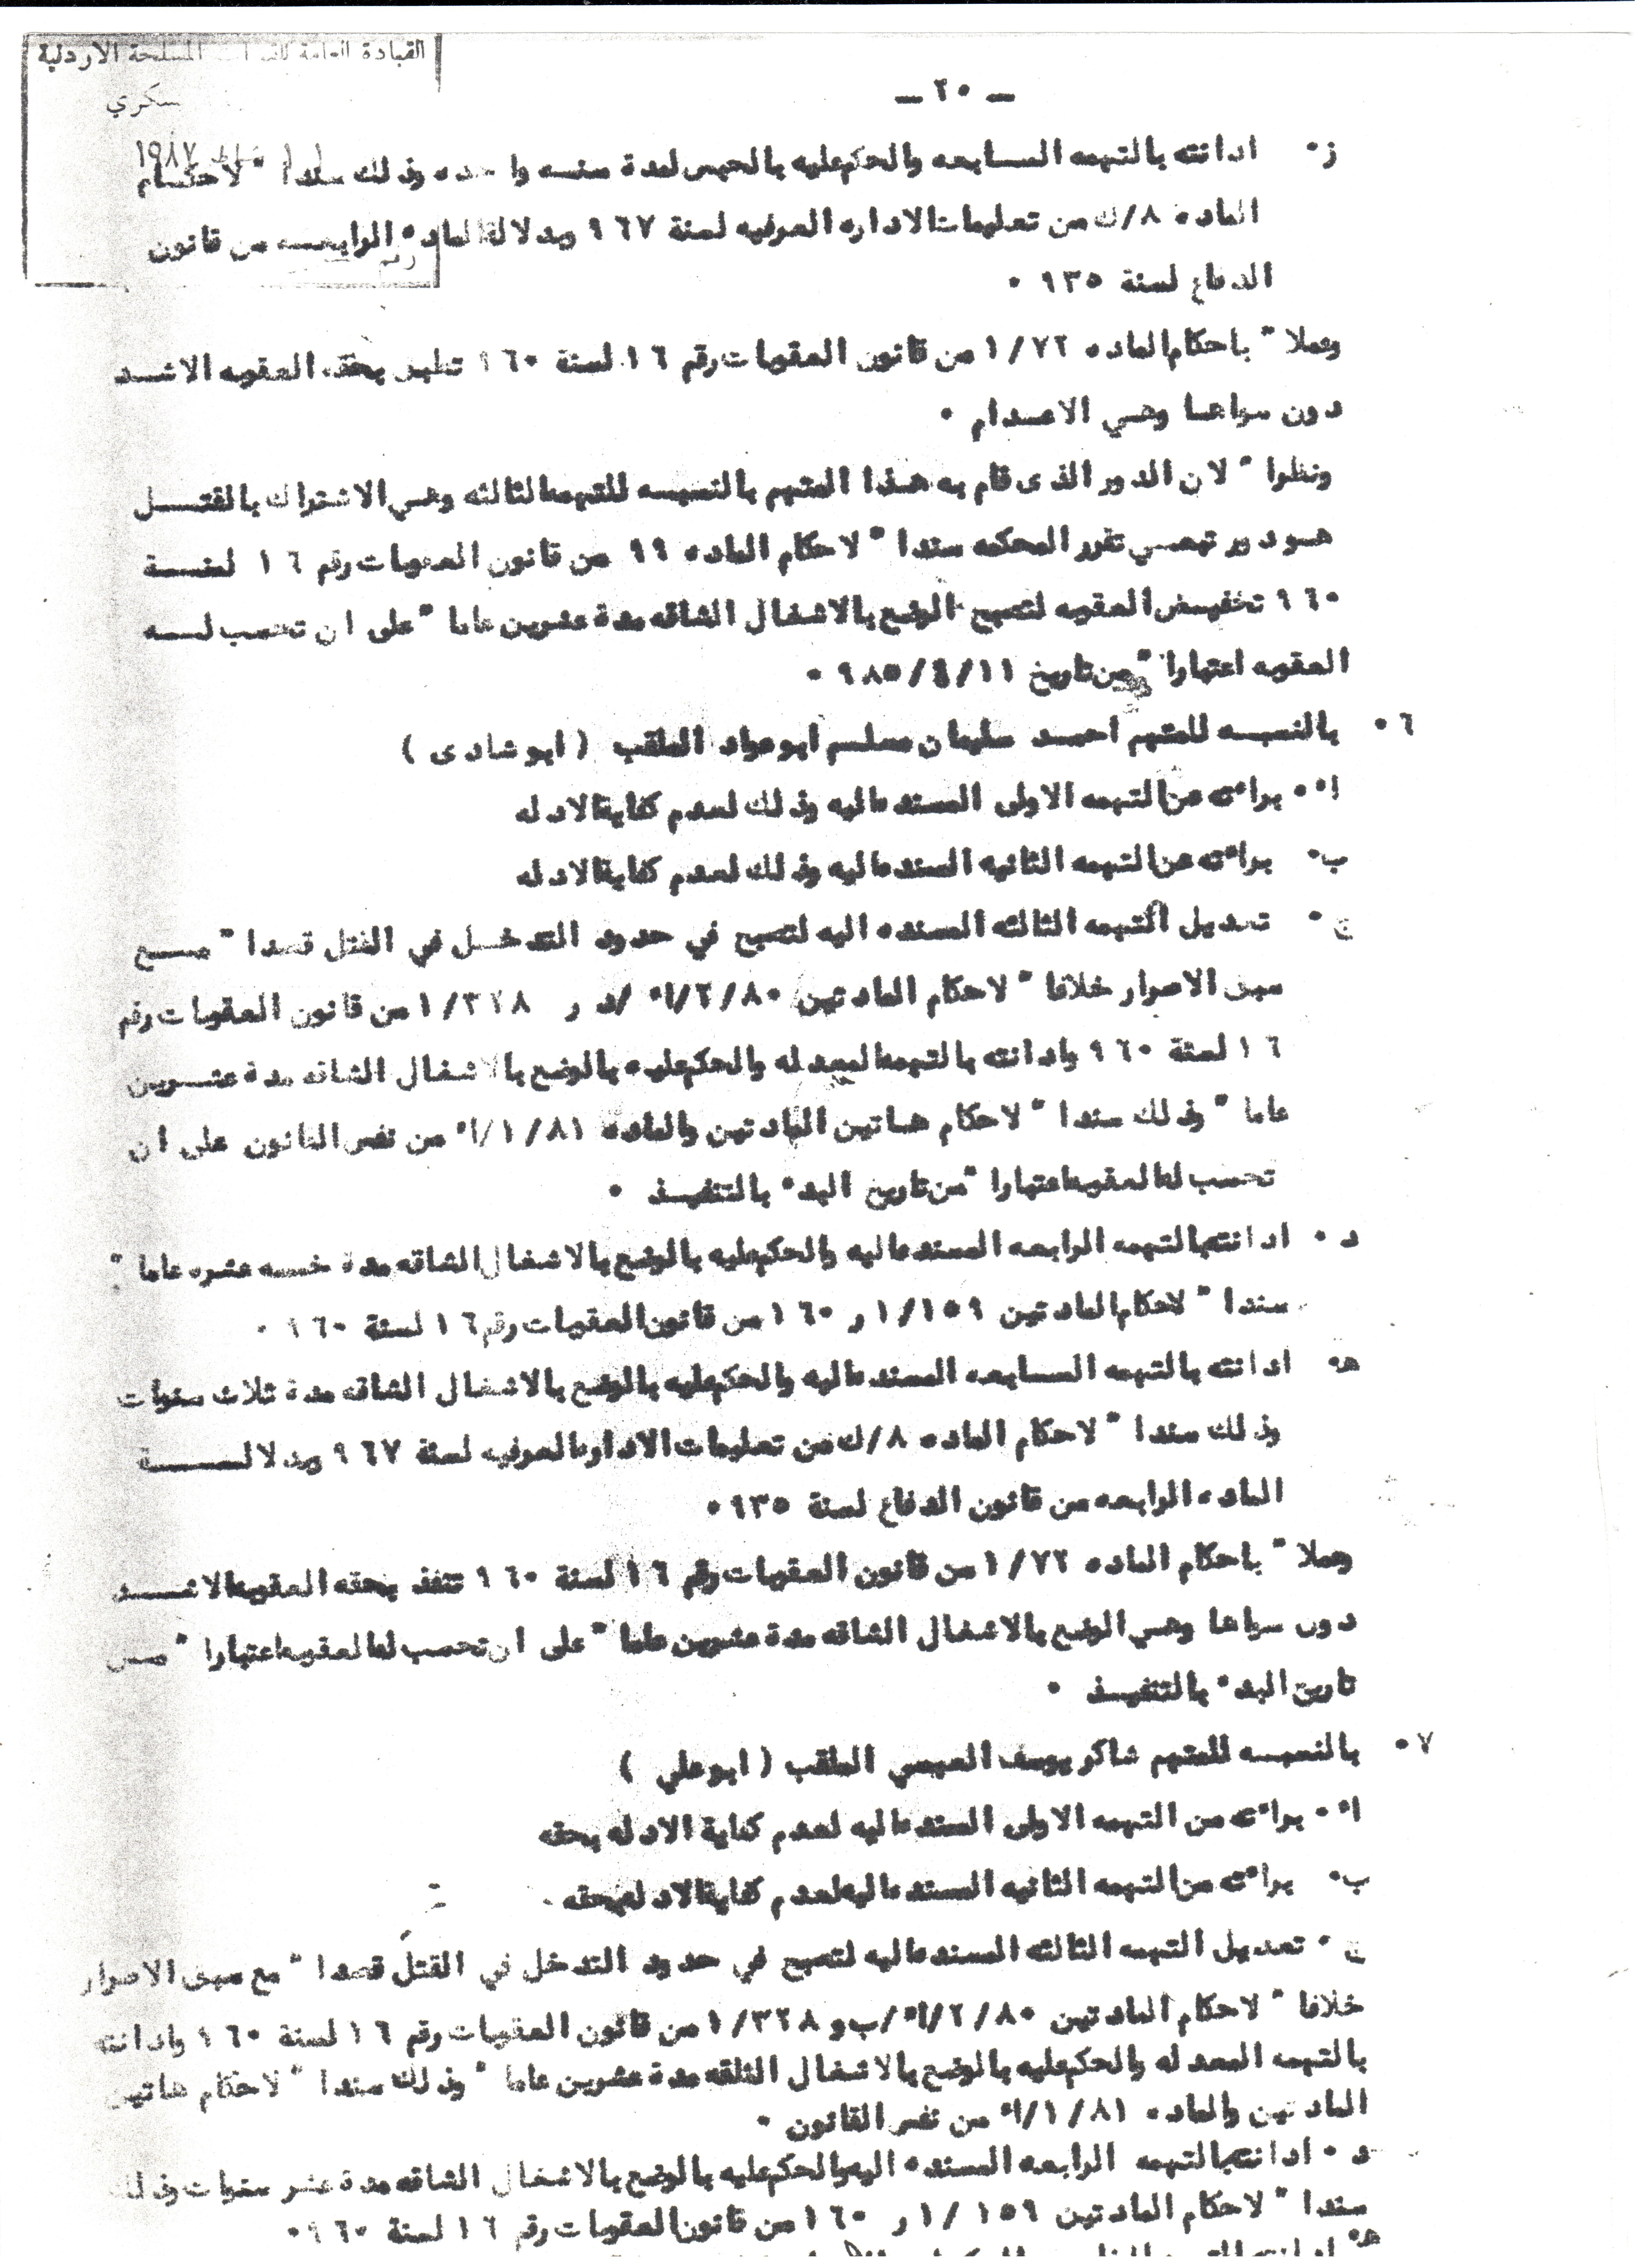 القيادة العامة للقوات المسلحة الاردنية
ـ ٢٠ ـ
ز٠ ادانته بالتهمه السابعه والحكم عليه بالحبس لمدة سنه واحده وذلك سندا" لاحكام
الماده ٨/ك من تعليمات الاداره العرفيه لسنة ٩٦٧ وبدلالة الماده الرابعه من قانون
الدفاع لسنة ٩٣٥ ٠
وعملا" باحكام الماده ١/٧٢ من قانون العقوبات رقم ١٦ لسنة ٩٦٠ تطبق بحقه العقوبه الاشد
دون سواها وهي الاعدام ٠
ونظرا" لان الدور الذى قام به هذا المتهم بالنسبه للتهمه الثالثه وهي الاشتراك بالقتل
هو دور تبعي تقرر المحكمه سندا" لاحكام الماده ٩٩ من قانون العقوبات رقم ١٦ لسنة
٩٦٠ تخفيض العقوبه لتصبح الوضع بالاشغال الشاقه مدة عشرين عاما" على ان تحسب له
العقوبه اعتبارا" من تاريخ ٩٨٥/٤/١١ ٠
٦٠ بالنسبه للمتهم احمد سليمان مسلم ابو عواد الملقب ( ابو شادى )
أ٠ براءته عن التهمه الاولى المسنده اليه وذلك لعدم كفاية الادله
ب٠ براءته عن التهمه الثانيه المسنده اليه وذلك لعدم كفاية الادله
ج٠ تعديل التهمه الثالثه المسنده اليه لتصبح في حدود التدخل في القتل قصدا" مع
سبق الاصرار خلافا" لاحكام المادتين ٨٠/٢/أ/د و ١/٣٢٨ من قانون العقوبات رقم
١٦ لسنة ٩٦٠ وادانته بالتهمه المعدله والحكم عليه بالوضع بالاشغال الشاقه مدة عشرين
عاما" وذلك سندا" لاحكام هاتين المادتين والماده ٨١/١/أ من نفس القانون على ان
تحسب له العقوبه اعتبارا" من تاريخ البدء بالتنفيذ ٠
د٠ ادانته بالتهمه الرابعه المسنده اليه والحكم عليه بالوضع بالاشغال الشاقه مدة خمسه عشره عاما"
سندا" لاحكام المادتين ١/١٥٩ و ١٦٠ من قانون العقوبات رقم ١٦ لسنة ٩٦٠ ٠
هـ٠ ادانته بالتهمه السابعه المسنده اليه والحكم عليه بالوضع بالاشغال الشاقه مدة ثلاث سنوات
وذلك سندا" لاحكام الماده ٨/ك من تعليمات الاداره العرفيه لسنة ٩٦٧ وبدلالة
الماده الرابعه من قانون الدفاع لسنة ٩٣٥٠
وعملا" باحكام الماده ١/٧٢ من قانون العقوبات رقم ١٦ لسنة ٩٦٠ تنفذ بحقه العقوبه الاشد
دون سواها وهي الوضع بالاشغال الشاقه مدة عشرين عاما" على ان تحسب له العقوبه اعتبارا" من
تاريخ البدء بالتنفيذ ٠
٧٠ بالنسبه للمتهم شاكر يوسف العبسي الملقب ( ابو علي )
أ٠ براءته من التهمه الاولى المسنده اليه لعدم كفاية الادله بحقه
ب٠ براءته من التهمه الثانيه المسنده اليه لعدم كفاية الادله بحقه
ج٠ تعديل التهمه الثالثه المسنده اليه لتصبح في حدود التدخل في القتل قصدا" مع سبق الاصرار
خلافا" لاحكام المادتين ٨٠/٢/أ/ب و ١/٣٢٨ من قانون العقوبات رقم ١٦ لسنة ٩٦٠ وادانته
بالتهمه المعدله والحكم عليه بالوضع بالاشغال الشاقه مدة عشرين عاما" وذلك سندا" لاحكام هاتين
المادتين والماده ٨١/١/أ من نفس القانون ٠
د٠ ادانته بالتهمه الرابعه المسنده اليه والحكم عليه بالوضع بالاشغال الشاقه مدة عشر سنوات وذلك
سندا" لاحكام المادتين ١/١٥٩ و ١٦٠ من قانون العقوبات رقم ١٦ لسنة ٩٦٠٠